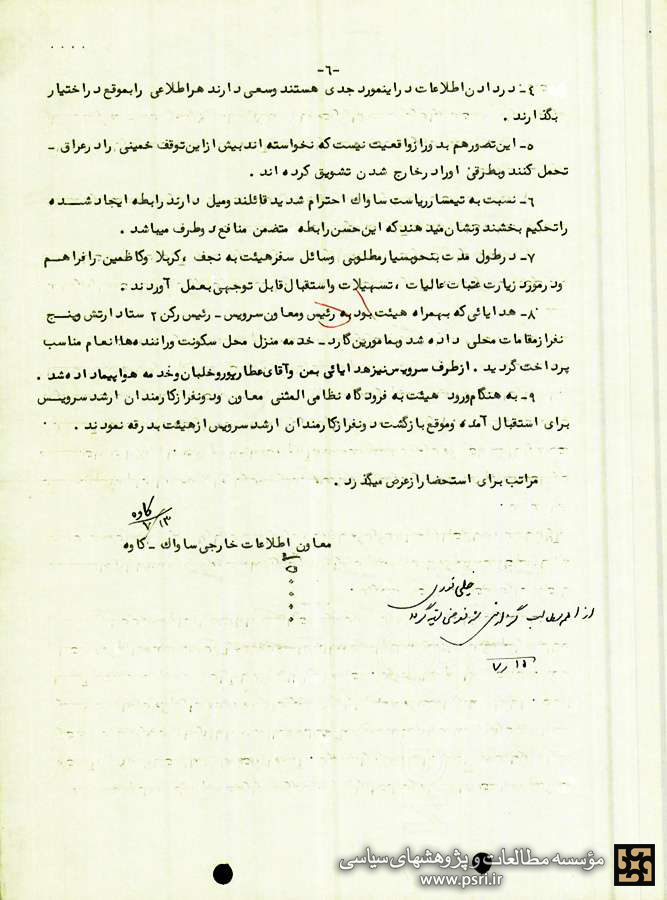 ....
-٦-
٤- در دادن اطلاعات در اینمورد جدی هستند وسعی دارند هر اطلاعی رابموقع در اختیار
بگذارند .
٥- این تصورهم بدور از واقعیت نیست که نخواسته اند بیش از این توقف خمینی را در عراق -
تحمل کنند وبطرقی اورا در خارج شدن تشویق کرده اند .
٦- نسبت به تیمسار ریاست ساواك احترام شدید قائلند ومیل دارند رابطه ایجاد شده
را تحکیم بخشند ونشان میدهند که این حسن رابطه متضمن منافع دوطرف میباشد .
٧- در طول مدت بنحو بسیار مطلوبی وسائل سفر هیئت به نجف ، کربلا وکاظمین را فراهم
ودر مورد زیارت عتبات عالیات ، تسهیلات واستقبال قابل توجهی بعمل آوردند .
٨- هدایائی که بهمراه هیئت بود به رئیس ومعاون سرویس - رئیس رکن ٢ ستاد ارتش وپنج
نفر از مقامات محلی داده شد وبمامورین گارد - خدمه منزل محل سکونت وراننده ها انعام مناسب
پرداخت گردید . از طرف سرویس نیز هدایائی بمن وآقای عطارپور وخلبان وخدمه هواپیما داده شد .
٩- به هنگام ورود هیئت به فرودگاه نظامی المثنی معاون ودونفر از کارمندان ارشد سرویس
برای استقبال آمده وموقع بازگشت دونفر از کارمندان ارشد سرویس از هیئت بدرقه نمودند .
مراتب برای استحضار از عرض میگذرد .
کاوه
٧/١٣
معاون اطلاعات خارجی ساواك - کاوه
خیلی فوری
از اهم مطالب گزارشی
٧/١٥
مؤسسه مطالعات و پژوهشهای سیاسی
www.psri.ir